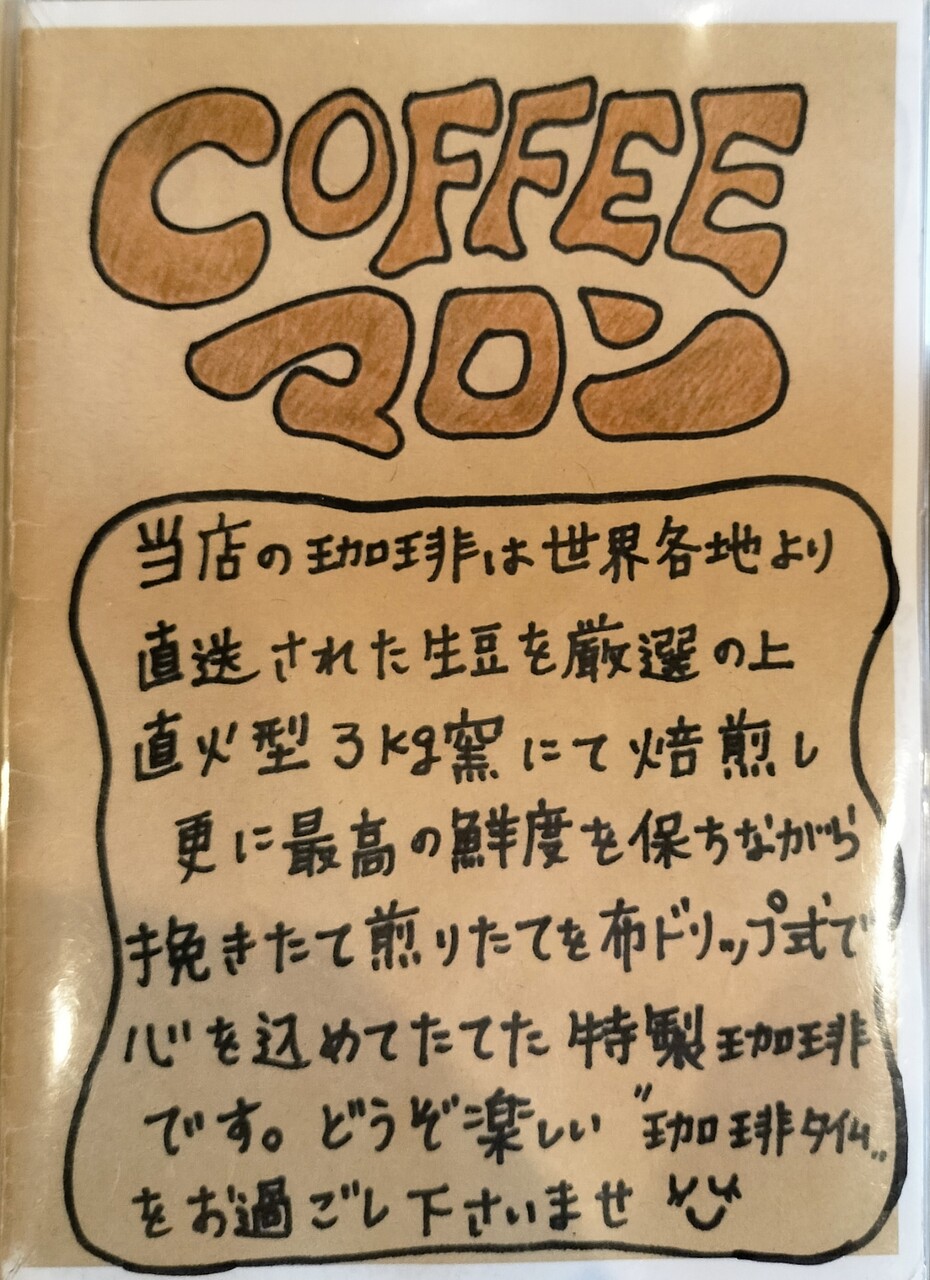 COFFEE
マロン
当店の珈琲は世界各地より
直送された生豆を厳選の上
直火型3kg窯にて焙煎し
更に最高の鮮度を保ちながら
挽きたて煎りたてを布ドリップ式で
心を込めてたてた特製珈琲
です。どうぞ楽しい〝珈琲タイム〟
をお過ごし下さいませ